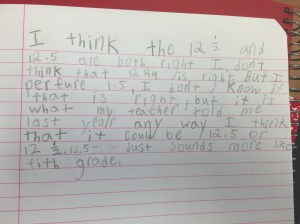 I think the 12 ½ and
12.5 are both right I don't
think that 2 is right but I
1.5, I don't know if
that is right, but it is
what my teather told me
last year any way I think
that it could be 12.5 or
12 ½, 12.5 just sounds more like
fith grade.